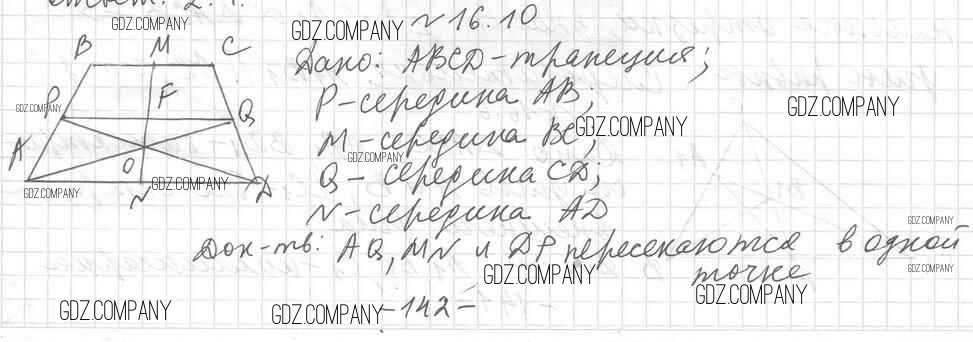 N 16.10
Дано: ABCD - трапеция;
P - середина AB;
M - середина BC;
Q - середина CD;
N - середина AD
Док-ть: AQ, MN и DP пересекаются в одной
точке
-142-
B M C
F
P Q
A O N D
GDZ.COMPANY
GDZ.COMPANY
GDZ.COMPANY
GDZ.COMPANY
GDZ.COMPANY
GDZ.COMPANY
GDZ.COMPANY
GDZ.COMPANY
GDZ.COMPANY
GDZ.COMPANY
GDZ.COMPANY
GDZ.COMPANY
GDZ.COMPANY
GDZ.COMPANY